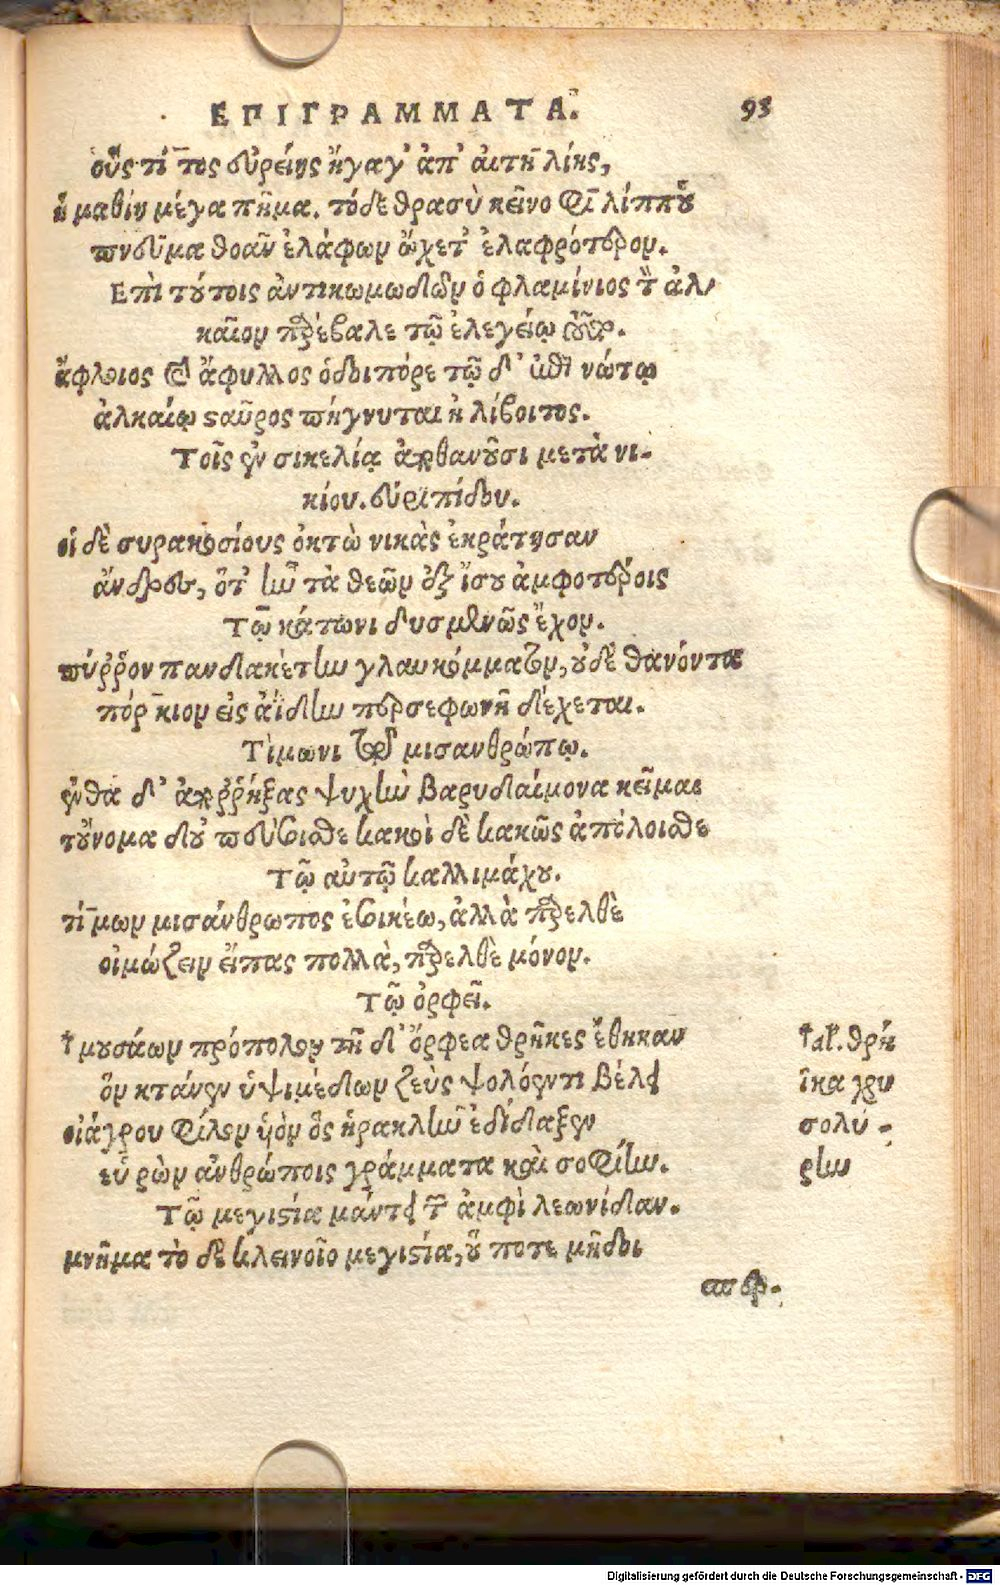 ΕΠΙΓΡΑΜΜΑΤΑ. 93
οὓς τίτος εὐρείης ἤγαγ' ἀπ' ἰταλίης,
ἠμαθίῃ μέγα πῆμα. τὸ δὲ θρασὺ κεῖνο φιλίππου
πνεῦμα θοῶν ἐλάφων ᾤχετ' ἐλαφρότερον.
Επὶ τούτοις ἀντικωμωδῶν ὁ φλαμίνιος τὸν ἀλ-
καῖον παρέβαλε τῷ ἐλεγείῳ οὕτως.
ἄφλοιος καὶ ἄφυλλος ὁδοιπόρε τῷδ' ἐπὶ νώτῳ
ἀλκαίῳ σταῦρος πήγνυται ἠλίβοιτος.
Τοῖς ἐν σικελίᾳ ἀποθανοῦσι μετὰ νι-
κίου. εὐριπίδου.
οἱ δὲ συρακοσίους ὀκτὼ νικὰς ἐκράτησαν
ἄνδρες, ὅτ' ἦν τὰ θεῶν ἐξ ἴσου ἀμφοτέροις
Τῷ κάτωνι δυσμενῶς ἔχον.
πύῤῥον πανδακέτην γλαυκόμματον, οὐδὲ θανόντα
πόρκιον εἰς ἀΐδην περσεφωνῆ δέχεται.
Τίμωνι τῷ μισανθρώπῳ.
ἐνθά δ' ἀποῤῥήξας ψυχὴν βαρυδαίμονα κεῖμαι
τοὔνομα δ' οὐ πεύσοισθε κακοὶ δὲ κακῶς ἀπόλοισθε
Τῷ αὐτῷ καλλιμάχου.
τίμων μισάνθρωπος ἐσοικέω, ἀλλὰ πάρελθε
οἰμώζειν εἴπας πολλὰ, πάρελθε μόνον.
Τῷ ὀρφεῖ.
† μουσάων πρόπολον τῇ δ' ὄρφεα θρῆκες ἔθηκαν †αλ. θρή
ὃν κτάνεν ὑψιμέδων ζεὺς ψολόεντι βέλει ϊκα χρυ
οἰάγρου φίλον υἱὸν ὃς ἡρακλῆν ἐδίδαξεν σολύ-
εὑρὼν ἀνθρώποις γράμματα καὶ σοφίην. ρην
Τῷ μεγιστία μάντει τῶν ἀμφὶ λεωνίδαν.
μνῆμα τὸ δὲ κλεινοῖο μεγιστία, οὕ ποτε μῆδοι
σπερ.